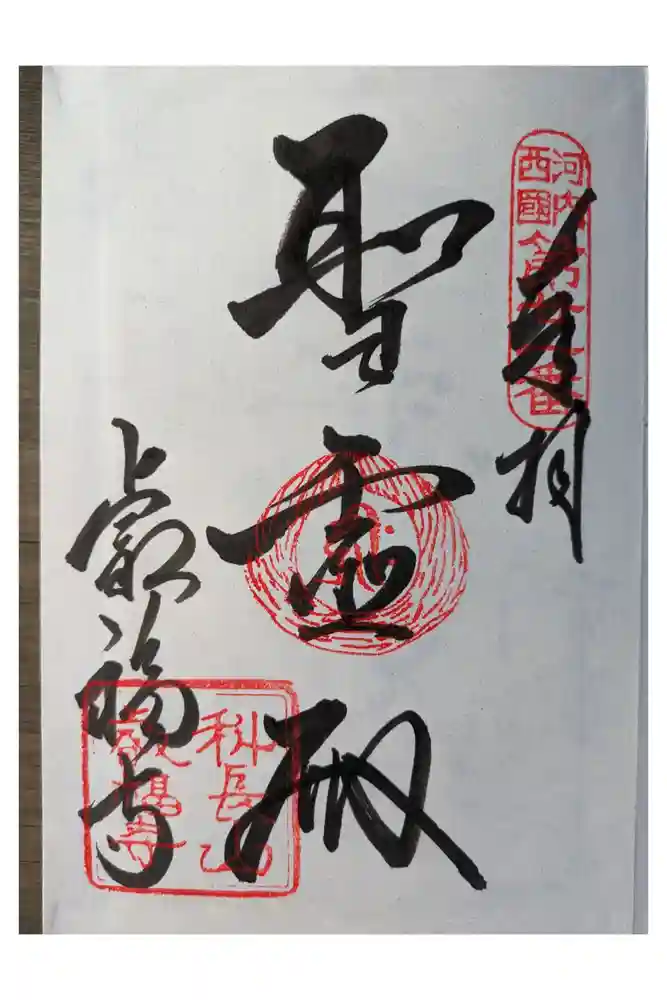 河内
西國
奉拝
聖霊殿
叡福寺
科長山
叡福寺